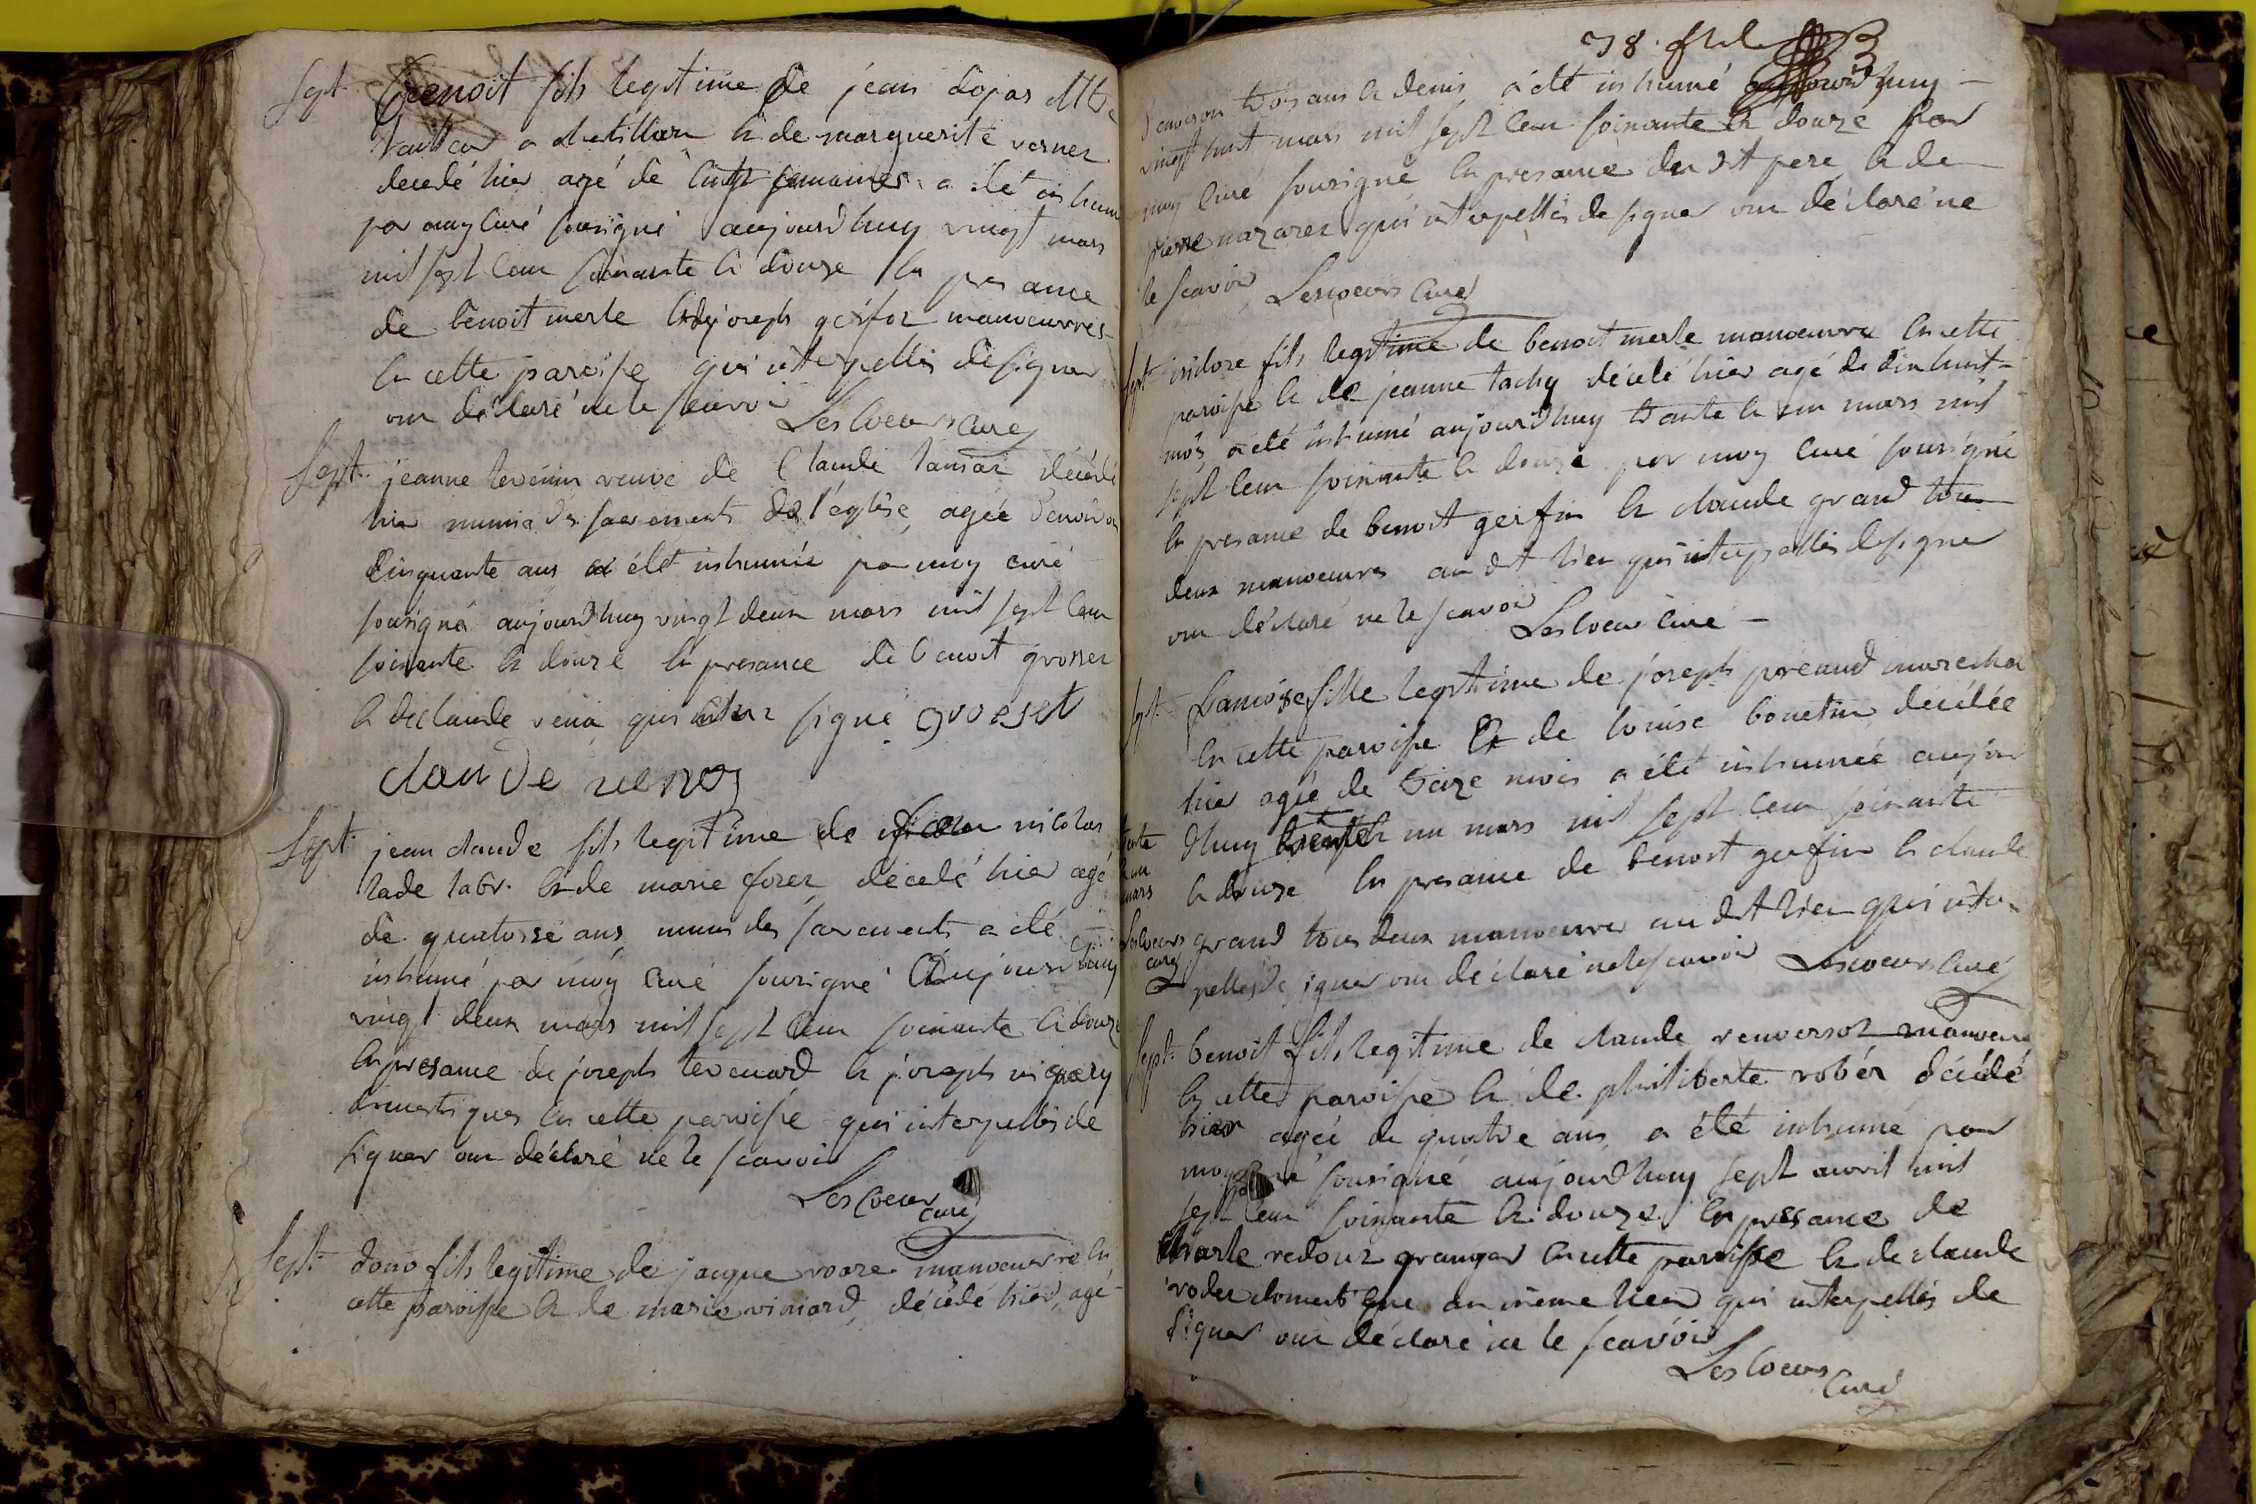 Sept. Benoit fils legitime de jean dojas Mtre
tailleur a chatillon & de marguerite vernez
decedé hier agé de cinq semaines a eté inhumé
par moy curé sousigné aujourdhuy vingt mars
mil sept cent soixante & douze en presance
de benoit merle & de joseph manoeuvres
en cette paroisse qui interpellés de signer
ont déclaré ne le scavoir Lescoeurs curé
Sept. jeanne tevenin veuve de Claude décédé
hier munie des sacrements de l'église, agée denviron
Cinquante ans a été inhumée par moy curé
sousigné aujourdhuy vingt deux mars mil sept cent
soixante & douze en presance de benoit grosset
& de claude vena qui ont signé groeset
claude
Sept. jean claude fils legitime de nicolas
lade labr. & de marie forez décédé hier agé
de quatorse ans, muni des sacrements a été
inhumé par moy curé sousigné aujourdhuy
vingt deux mars mil sept cent soixante & douze
en presance de joseph tevenard & joseph
domestiques en cette paroisse qui interpellés de
signer ont déclaré ne le scavoir
Lescoeurs
curé
Sept. fils legitime de jaque manoeuvre en
cette paroisse & de marie vimard, décédé hier, agé
78.
denviron trois ans & demis a été inhumé aujourdhuy
vingt huit mars mil sept cent soixante & douze par
moy curé sousigné en presance du dit pere & de
pierre nazarez qui interpellés de signer ont déclaré ne
le scavoir Lescoeurs curé
Sept. isidore fils legitime de benoit merle manoeuvre en cette
paroisse & de jeanne tachy décédé hier agé de dix huit
mois a été inhumé aujourdhuy trante & un mars mil
sept cent soixante & douze par moy curé sousigné
en presance de benoit gerfin & claude grand tous
deux manoeuvres au dit lieu qui interpellés de signer
ont déclaré ne le scavoir Lescoeurs curé
Sept. francoise fille legitime de joseph preaud marechal
en cette paroisse & de louise bonetin décédée
hier agée de treize mois a été inhumée aujour
trente dhuy trente & un mars mil sept cent soixante
& un
mars & douze en presance de benoit gerfin & claude
Lescoeurs grand tous deux manoeuvres au dit lieu qui inter
curé pellés de signer ont déclaré ne le scavoir Lescoeurs curé
Sept. benoit fils legitime de claude renversot manoeuvre
en cette paroisse & de philiberte robér décédé
hier agée de quatre ans, a été inhumé par
moy curé sousigné aujourdhuy sept avril mil
sept cent soixante & douze, en presance de
charle redouz granger en cette paroisse & de claude
rodet domestique au même lieu qui interpellés de
signer ont déclaré ne le scavoir
Lescoeurs
curé